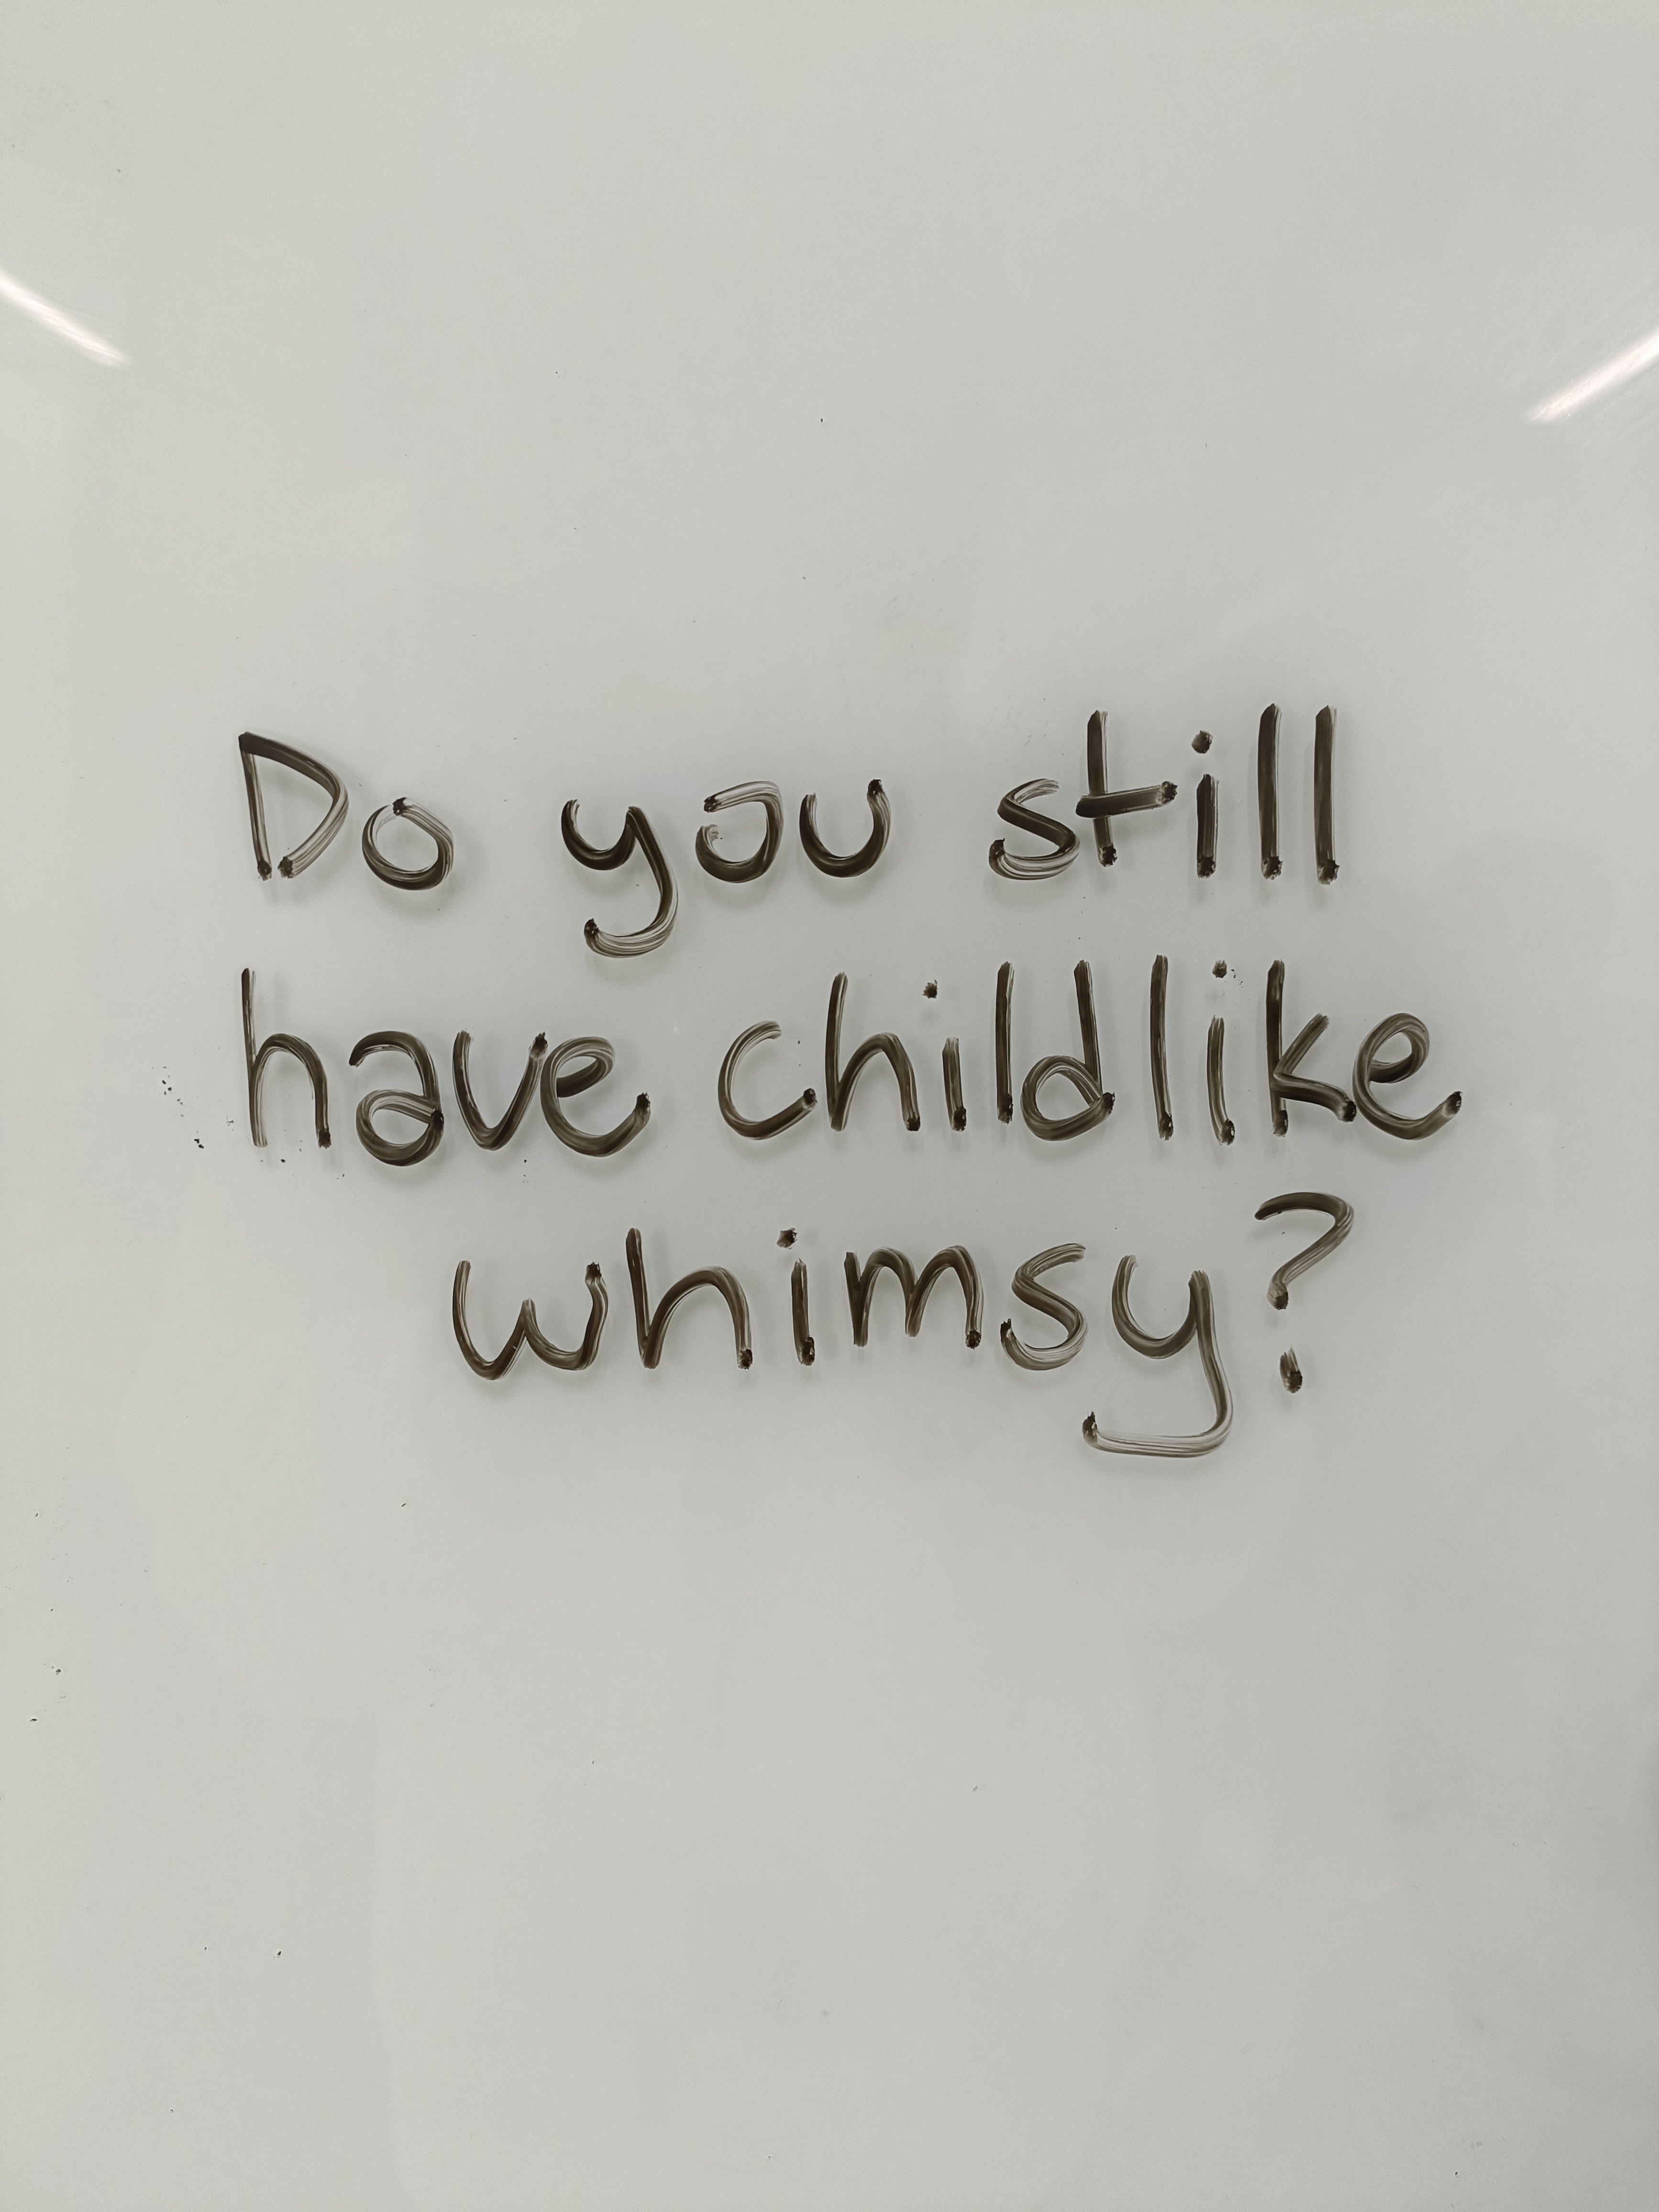 Do you still
have childlike
whimsy?